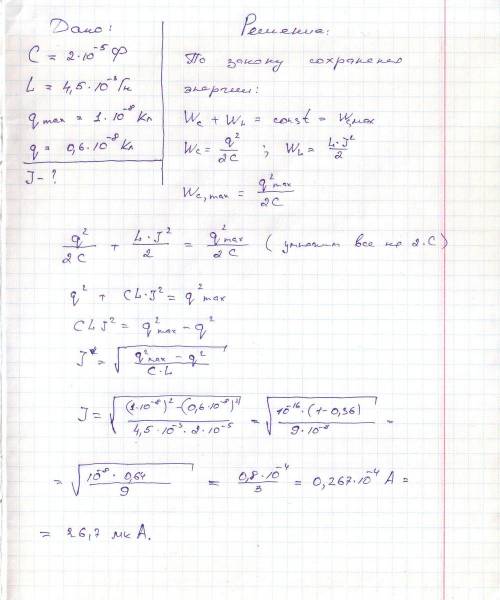 Дано:
C = 2·10⁻⁵ Ф
L = 4,5·10⁻³ Гн
q max = 1·10⁻⁸ Кл
q = 0,6·10⁻⁸ Кл
J - ?
Решение:
По закону сохранения
энергии:
Wc + WL = const = Wc,max
Wc = q²/2C ; WL = L·J²/2
Wc,max = q²max/2C
q²/2C + L·J²/2 = q²max/2C (умножим все на 2·C)
q² + CL·J² = q²max
CLJ² = q²max - q²
J = √((q²max - q²)/(C·L))
J = √(((1·10⁻⁸)² - (0,6·10⁻⁸)²)/(4,5·10⁻³·2·10⁻⁵)) = √((10⁻¹⁶·(1-0,36))/(9·10⁻⁸)) =
= √((10⁻⁸·0,64)/9) = (0,8·10⁻⁴)/3 = 0,267·10⁻⁴ A =
= 26,7 мкА.